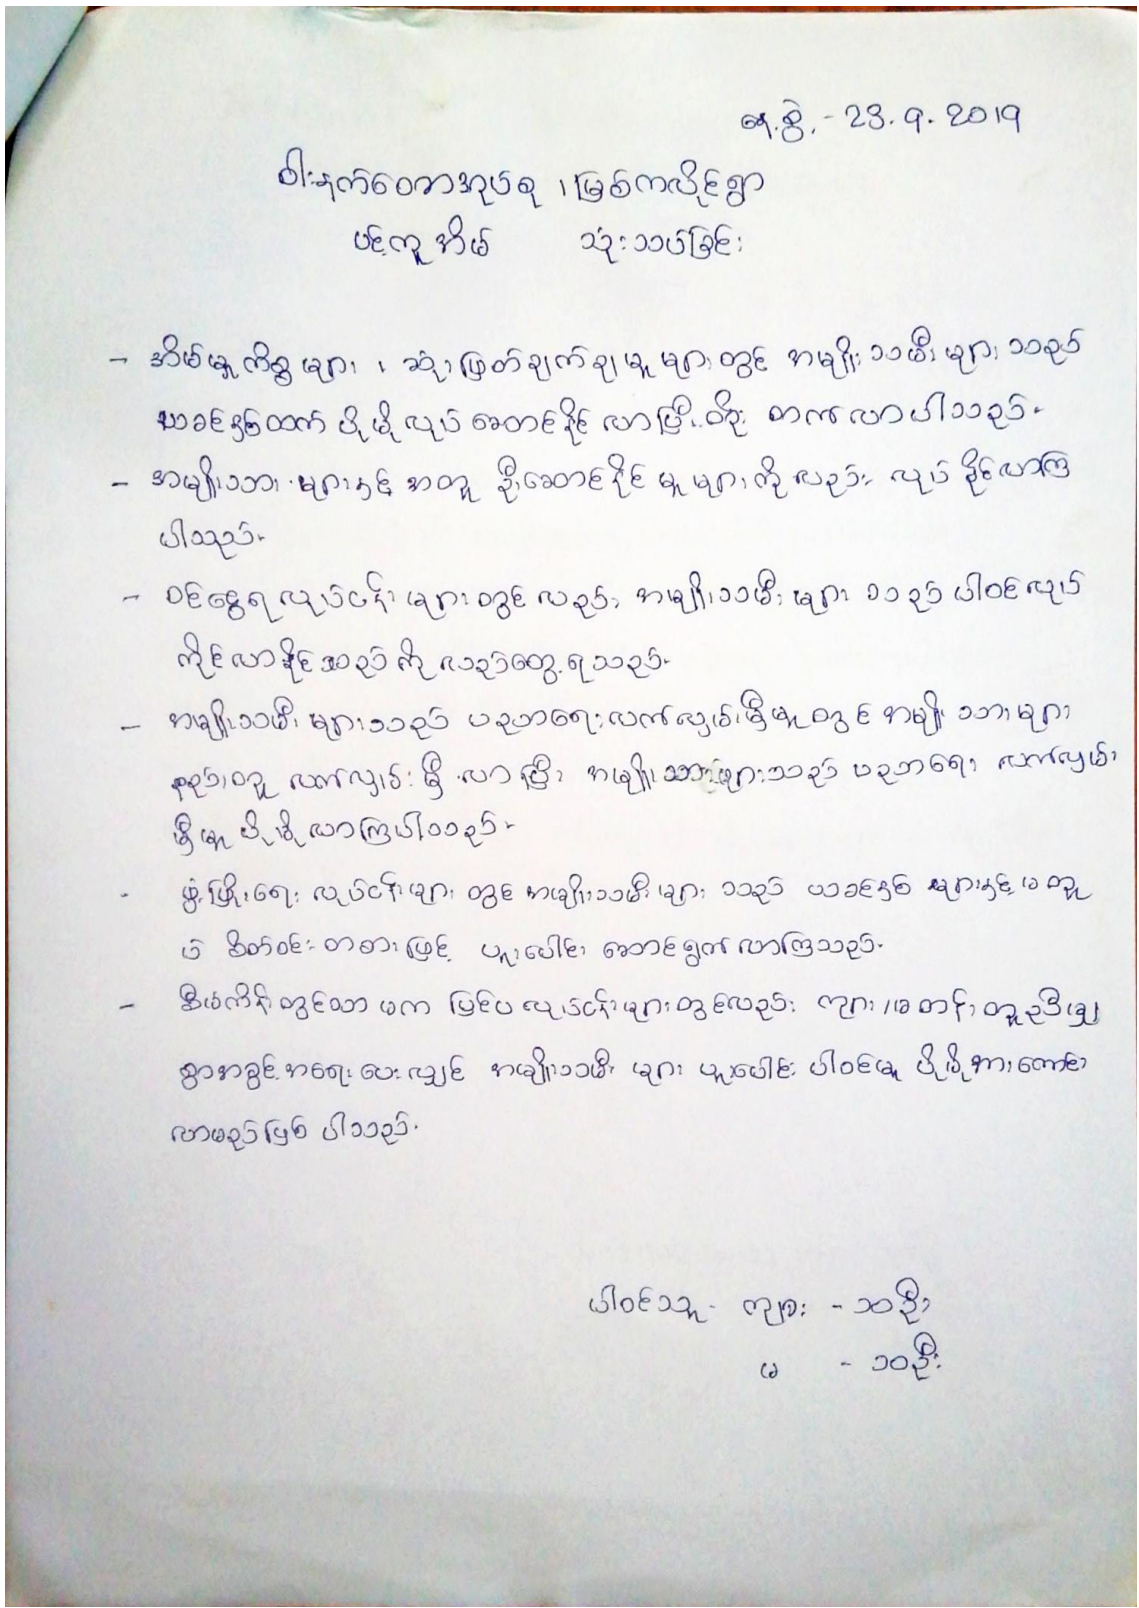 နေ့စွဲ - 23.9.2019
ဝါးနက်ချောင်းအုပ်စု ၊ မြစ်ကလိုင်ရွာ
ပင့်ကူအိမ် သုံးသပ်ခြင်း
- အိမ်မှုကိစ္စများ ၊ ဆုံးဖြတ်ချက်ချမှုများတွင် အမျိုးသမီးများသည်
ယခင်နှစ်ထက် ပိုမိုလုပ်ဆောင်နိုင်လာပြီး ဝိုင်း တက်လာပါသည်။
- အမျိုးသားများနှင့် အတူ ဦးဆောင်နိုင်မှုများကိုလည်း လုပ်နိုင်လာကြ
ပါသည်။
- ဝင်ငွေရလုပ်ငန်းများတွင်လည်း အမျိုးသမီးများ သည် ပါဝင်လုပ်
ကိုင်လာနိုင်သည်ကို လည်တွေ့ရသည်။
- အမျိုးသမီးများသည် ပညာရေးလက်လှမ်းမှီမှုတွင် အမျိုးသားများ
နည်းတူ လက်လှမ်းမှီလာပြီး အမျိုးသားများသည် ပညာရေး လက်လှမ်း
မှီမှု ပိုမိုလာကြပါသည်။
- ဖွံ့ဖြိုးရေး လုပ်ငန်းများတွင် အမျိုးသမီးများ သည် ယခင်နှစ်များနှင့်မတူ
ပဲ စိတ်ဝင်တစားဖြင့် ပူးပေါင်း ဆောင်ရွက်လာကြသည်။
- စီမံကိန်းတွင်သာမက ပြင်ပလုပ်ငန်းများတွင်လည်း ကျား/မ တန်းတူညီမျှ
စွာအခွင့်အရေးပေးလျှင် အမျိုးသမီးများ ပူးပေါင်း ပါဝင်မှု ပိုမိုအားကောင်း
လာမည်ဖြစ်ပါသည်။
ပါဝင်သူ - ကျား - ၁၀ဦး
မ - ၁၀ဦး